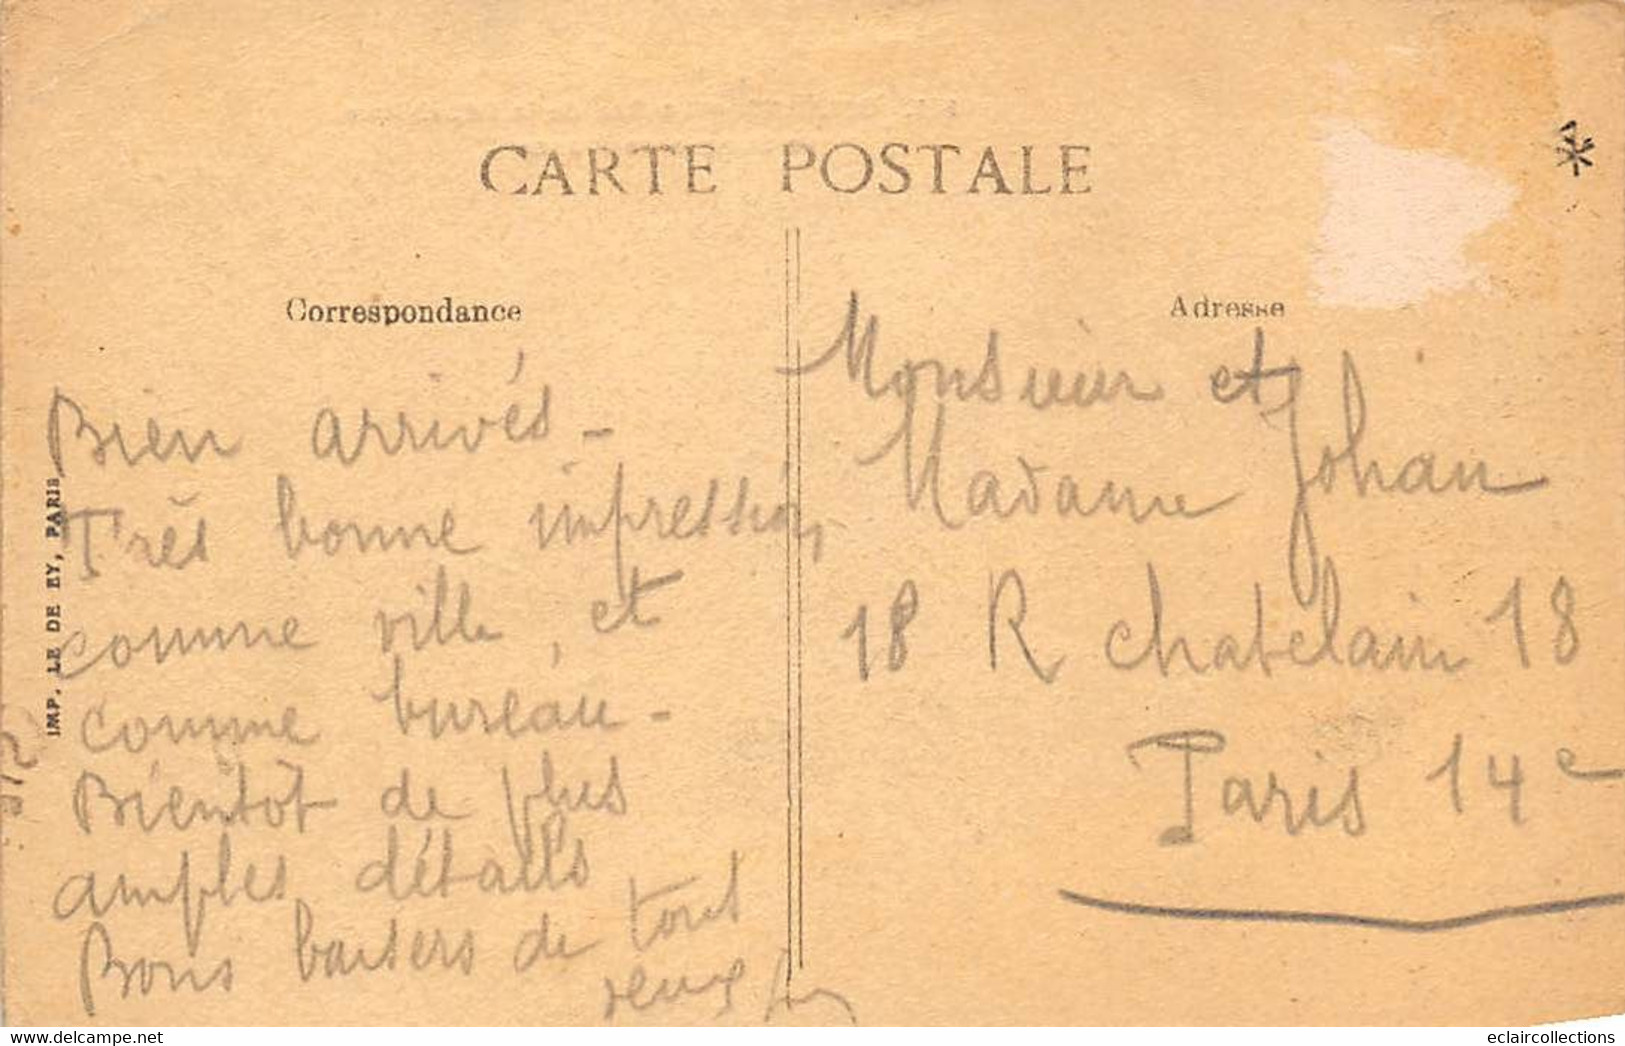 CARTE POSTALE
Correspondance
Bien arrivés -
Très bonne impression,
comme ville, et
comme bureau -
Bientôt de plus
amples détails
Bons baisers de tous
deux
IMP. LE DE EY, PARIS
Adresse
Monsieur et
Madame Johan
18 R Chatelain 18
Paris 14e
eclaircollections